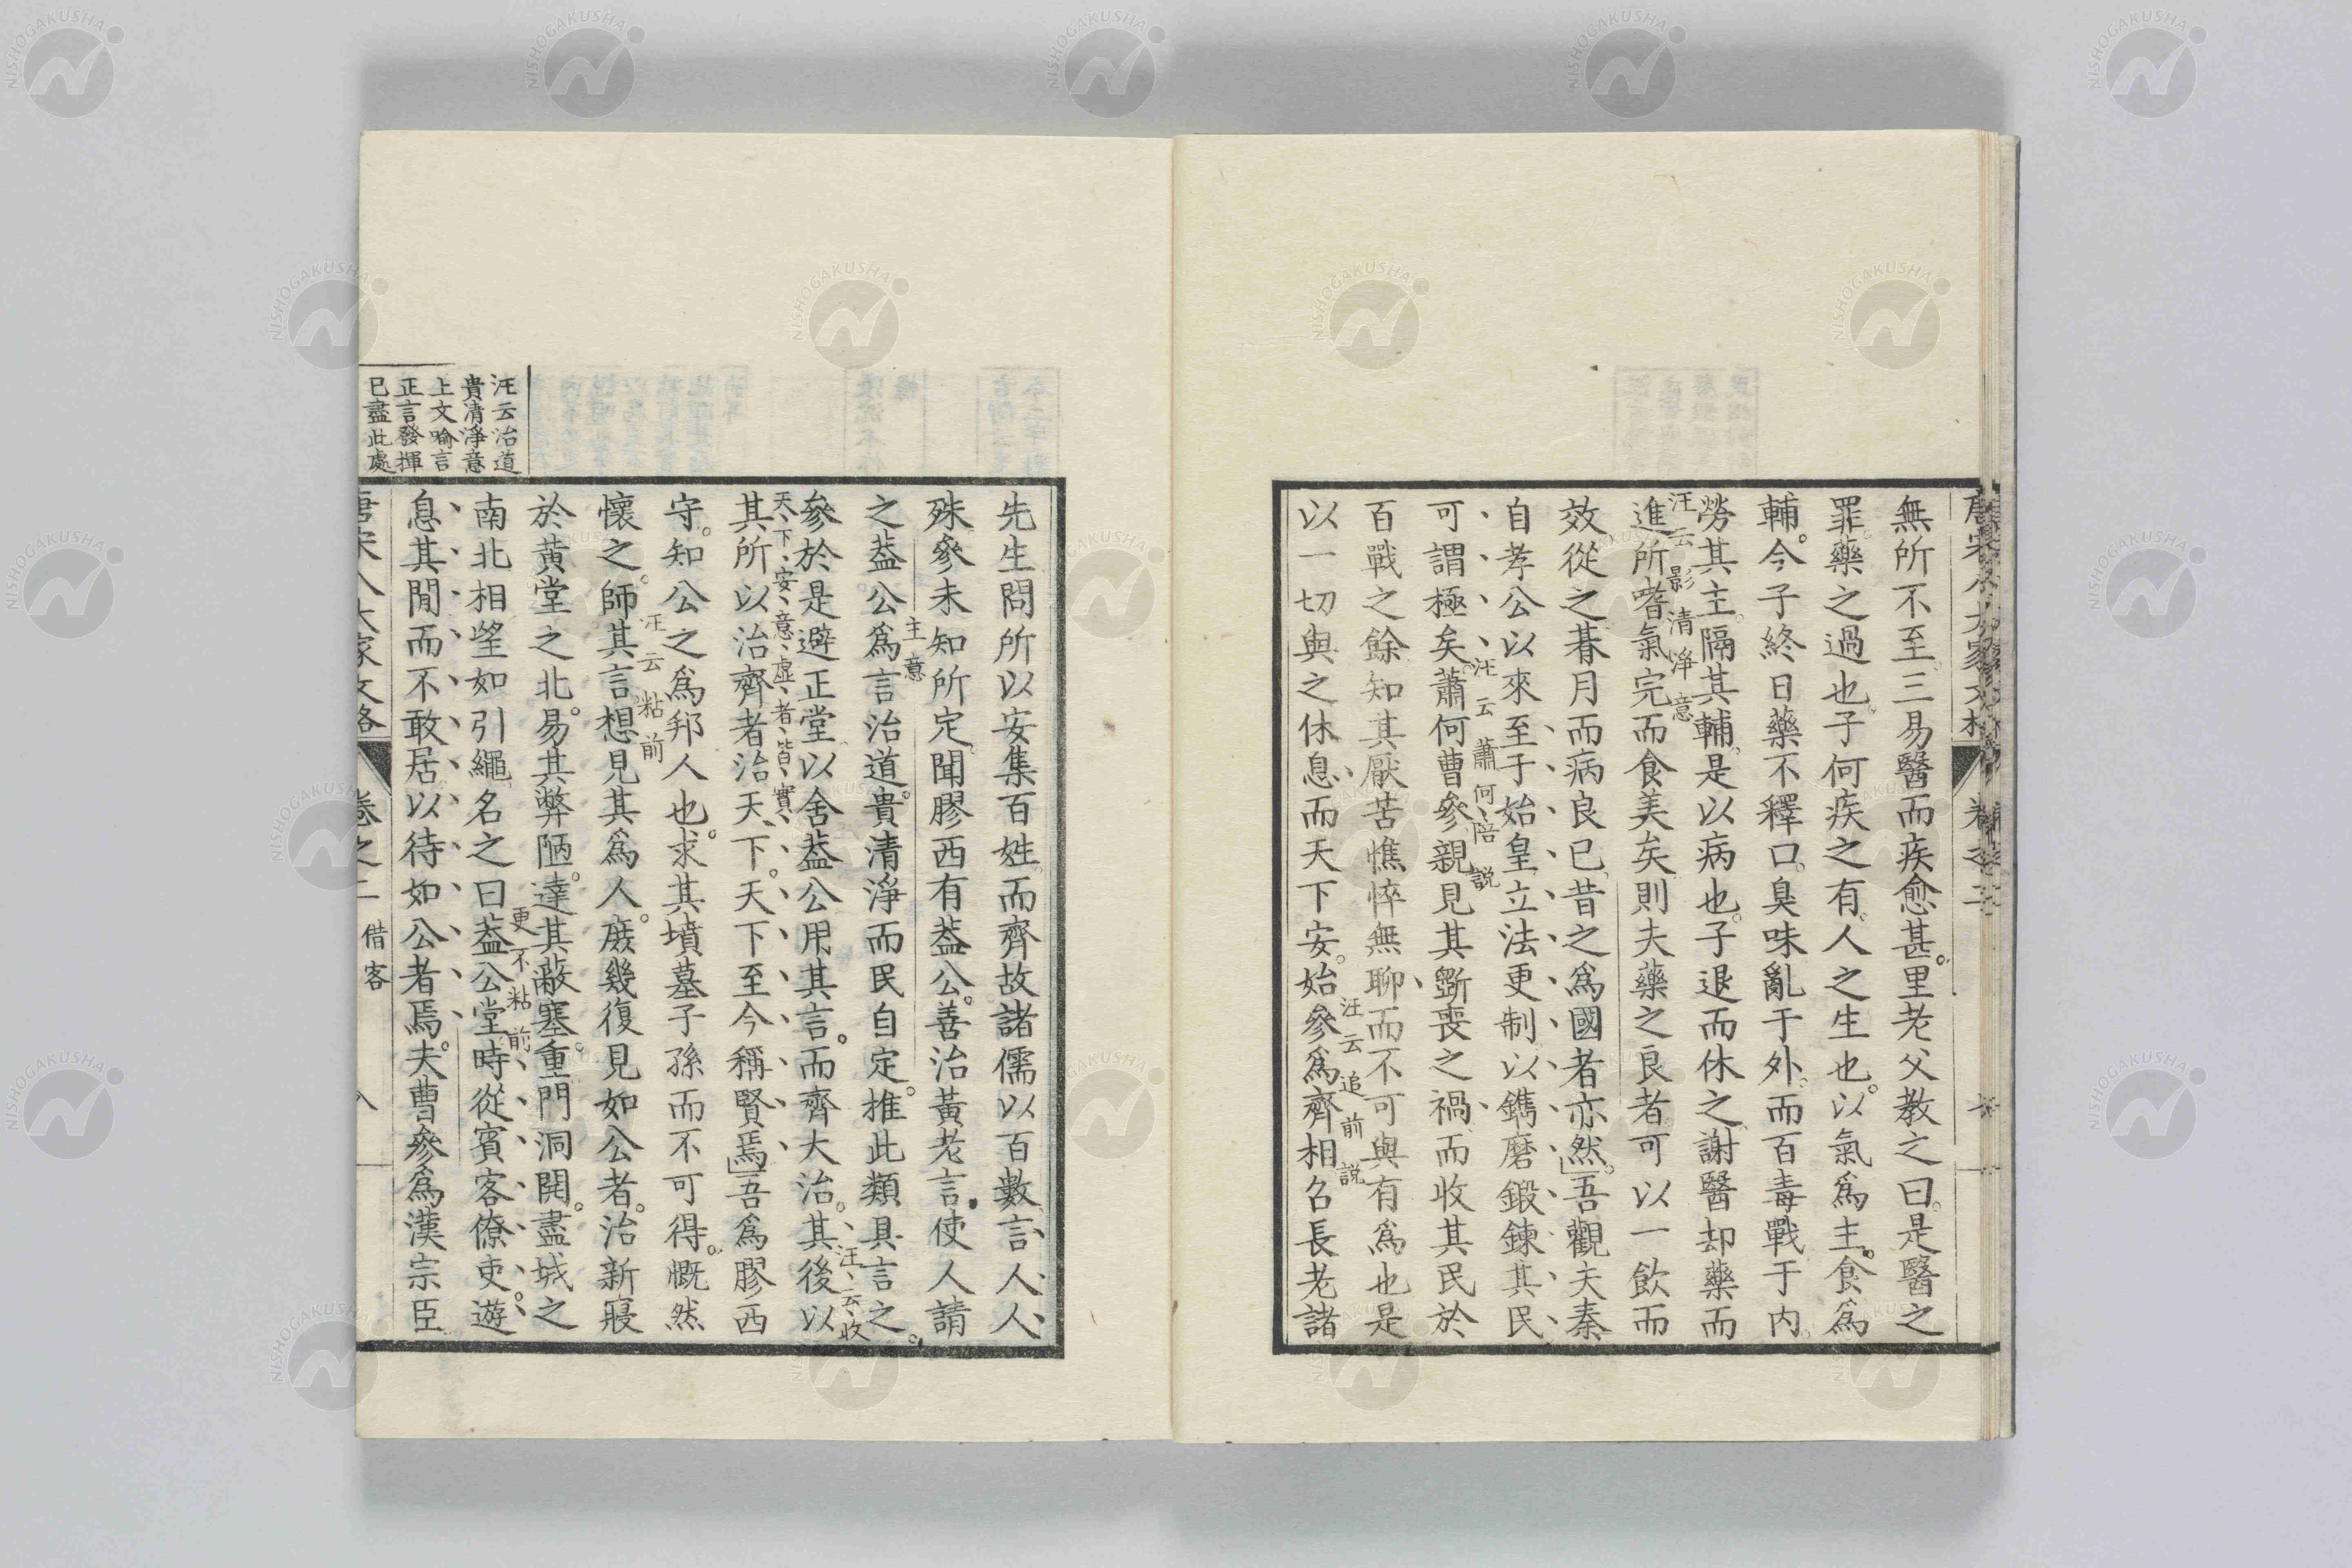 無所不至三易醫而疾愈甚里老父教之曰是醫之
罪藥之過也子何疾之有人之生也以氣爲主食爲
輔今子終日藥不釋口臭味亂于外而百毒戰于内
勞其主隔其輔是以病也子退而休之謝醫却藥而
汪云影清淨意
進所嗜氣完而食美矣則夫藥之良者可以一飲而
效從之朞月而病良已昔之爲國者亦然吾觀夫秦
自孝公以來至于始皇立法更制以鐫磨鍛鍊其民
汪云蕭何陪説
可謂極矣蕭何曹參親見其斲喪之禍而收其民於
百戰之餘知其厭苦憔悴無聊而不可與有爲也是
汪云追前説
以一切與之休息而天下安始參爲齊相召長老諸
先生問所以安集百姓而齊故諸儒以百數言人人
殊參未知所定聞膠西有葢公善治黃老言使人請
主意
之葢公爲言治道貴清淨而民自定推此類具言之
汪云收
參於是避正堂以舍葢公用其言而齊大治其後以
天下安意虛者皆實
其所以治齊者治天下天下至今稱賢焉吾爲膠西
守知公之爲邦人也求其墳墓子孫而不可得慨然
汪云粘前
懷之師其言想見其爲人庶幾復見如公者治新寢
於黃堂之北易其弊陋達其蔽塞重門洞開盡城之
更不粘前
南北相望如引繩名之曰葢公堂時從賓客僚吏遊
息其閒而不敢居以待如公者焉夫曹參爲漢宗臣
汪云治道
貴清淨意
上文喻言
正言發揮
已盡此處
唐宋八大家文格 卷之二 借客 八